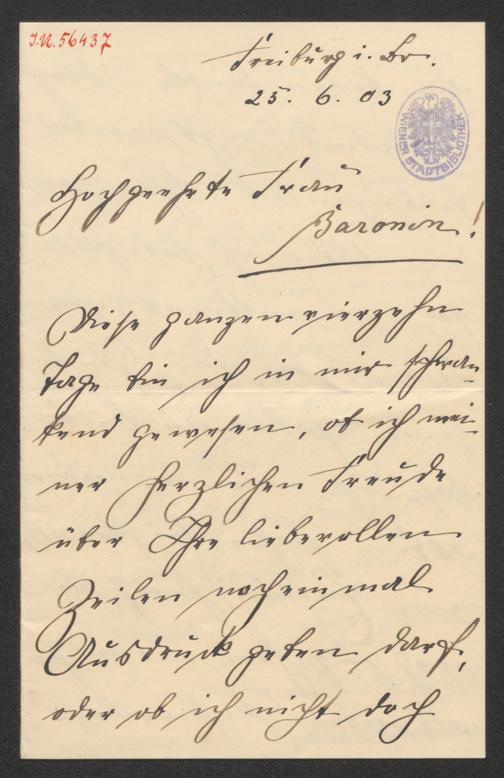 I.N. 56437
Freiburg i. Br.
25. 6. 03
WIENER STADTBIBLIOTHEK
Hochgeehrte Frau
Baronin!
Diese ganzen vierzehn
Tage bin ich in mir schwan-
kend gewesen, ob ich mei-
ner herzlichen Freude
über Ihre liebevollen
Zeilen noch einmal
Ausdruck geben darf,
oder ob ich nicht doch